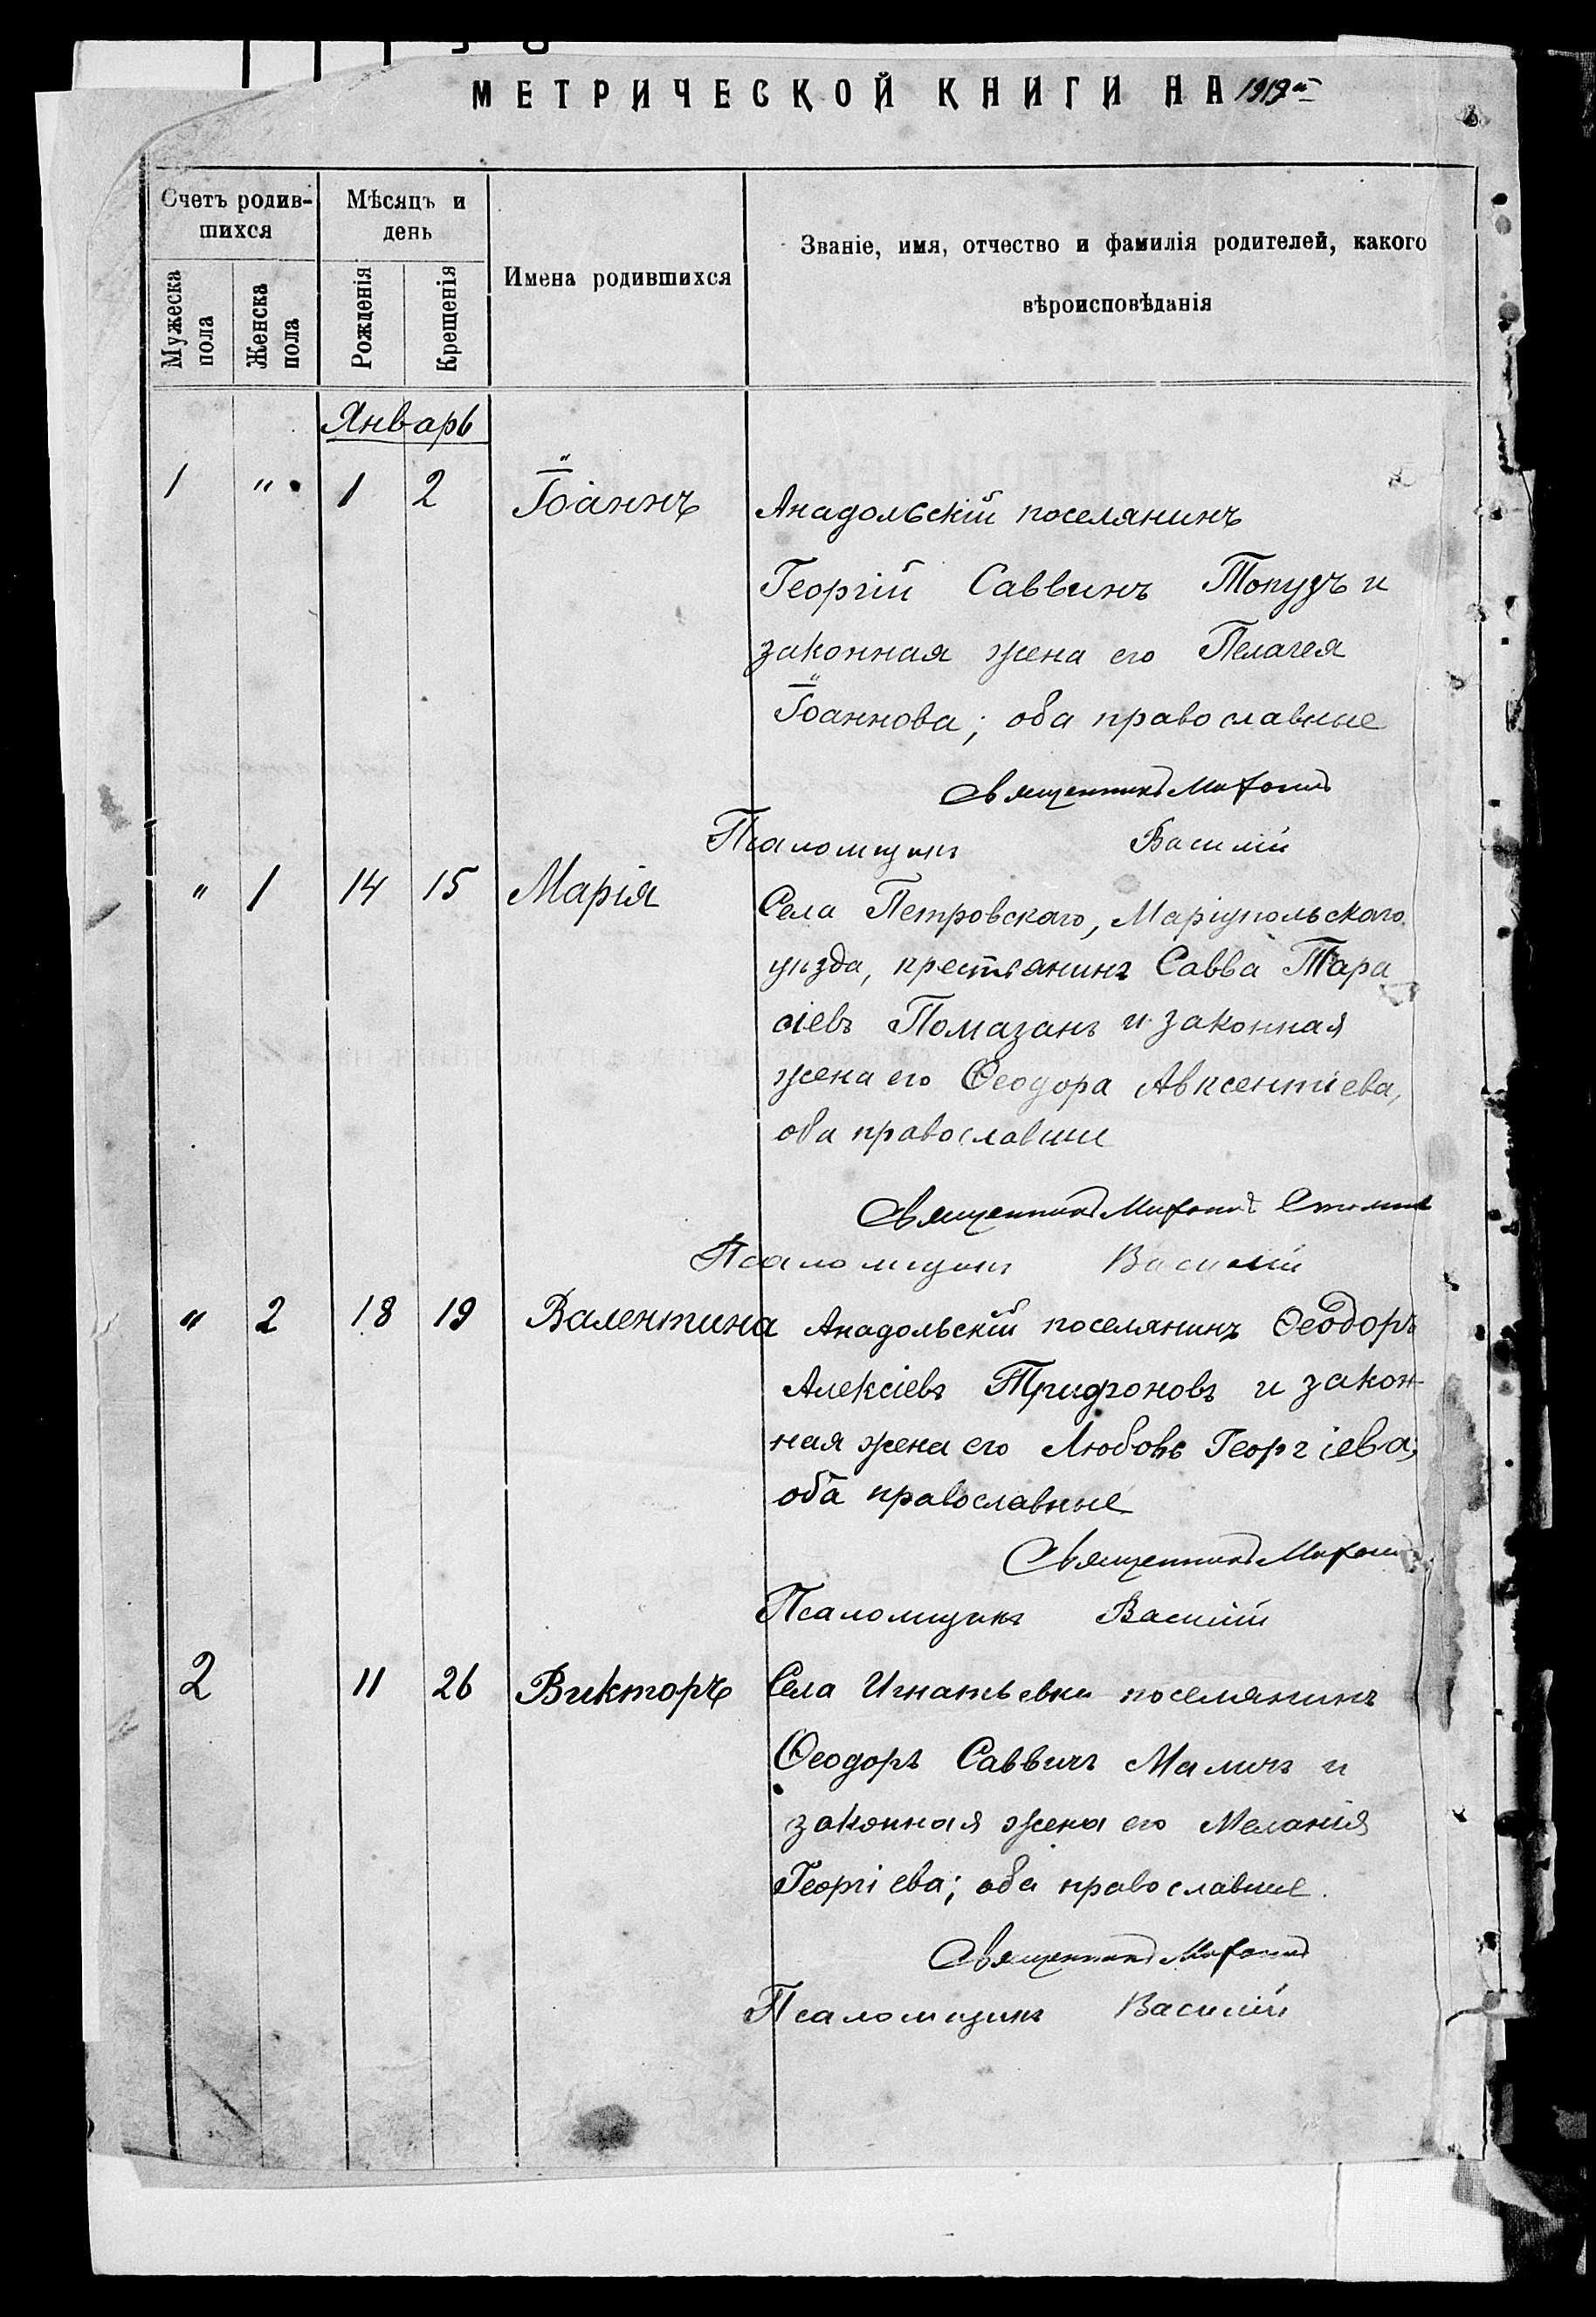 МЕТРИЧЕСКОЙ КНИГИ НА 1919
Счетъ родив-
шихся
Мѣсяцъ и
день
Имена родившихся
Званіе, имя, отчество и фамилія родителей, какого
вѣроисповѣданія
Мужеска пола
Женска пола
Рожденія
Крещенія
Январь
1 " 1 2 Іоаннъ Анадольскій поселянинъ
Георгій Саввинъ Топузъ и
законная жена его Пелагея
Іоаннова; оба православные
Священникъ
Псаломщикъ Василій
" 1 14 15 Марія Села Петровскаго, Маріупольскаго
уѣзда, крестьянинъ Савва Тара
сіевъ Помазанъ и законная
жена его Ѳеодора Авксентіева,
оба православные
Священникъ
Псаломщикъ Василій
" 2 18 19 Валентина Анадольскій поселянинъ Ѳеодоръ
Алексіевъ Трифоновъ и закон-
ная жена его Любовь Георгіева;
оба православные
Священникъ
Псаломщикъ Василій
2 11 26 Викторъ Села Игнатьевки поселянинъ
Ѳеодоръ Саввичъ и
законная жена его Меланія
Георгіева; оба православные.
Священникъ
Псаломщикъ Василій